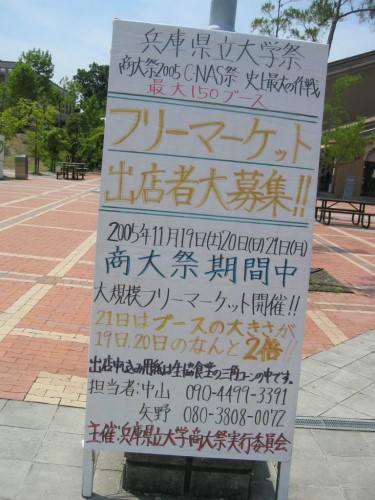 兵庫県立大学祭
商大祭2005 C-NAS祭 史上最大の作戦
最大150ブース
フリーマーケット
出店者大募集!!
2005年11月19日(土)20日(日)21日(月)
商大祭期間中
大規模フリーマーケット開催!!
21日はブースの大きさが
19日、20日のなんと2倍!!
出店申込み用紙は生協食堂の三角コーンの中です。
担当者:中山 090-4499-3391
矢野 080-3808-0072
主催:兵庫県立大学商大祭実行委員会